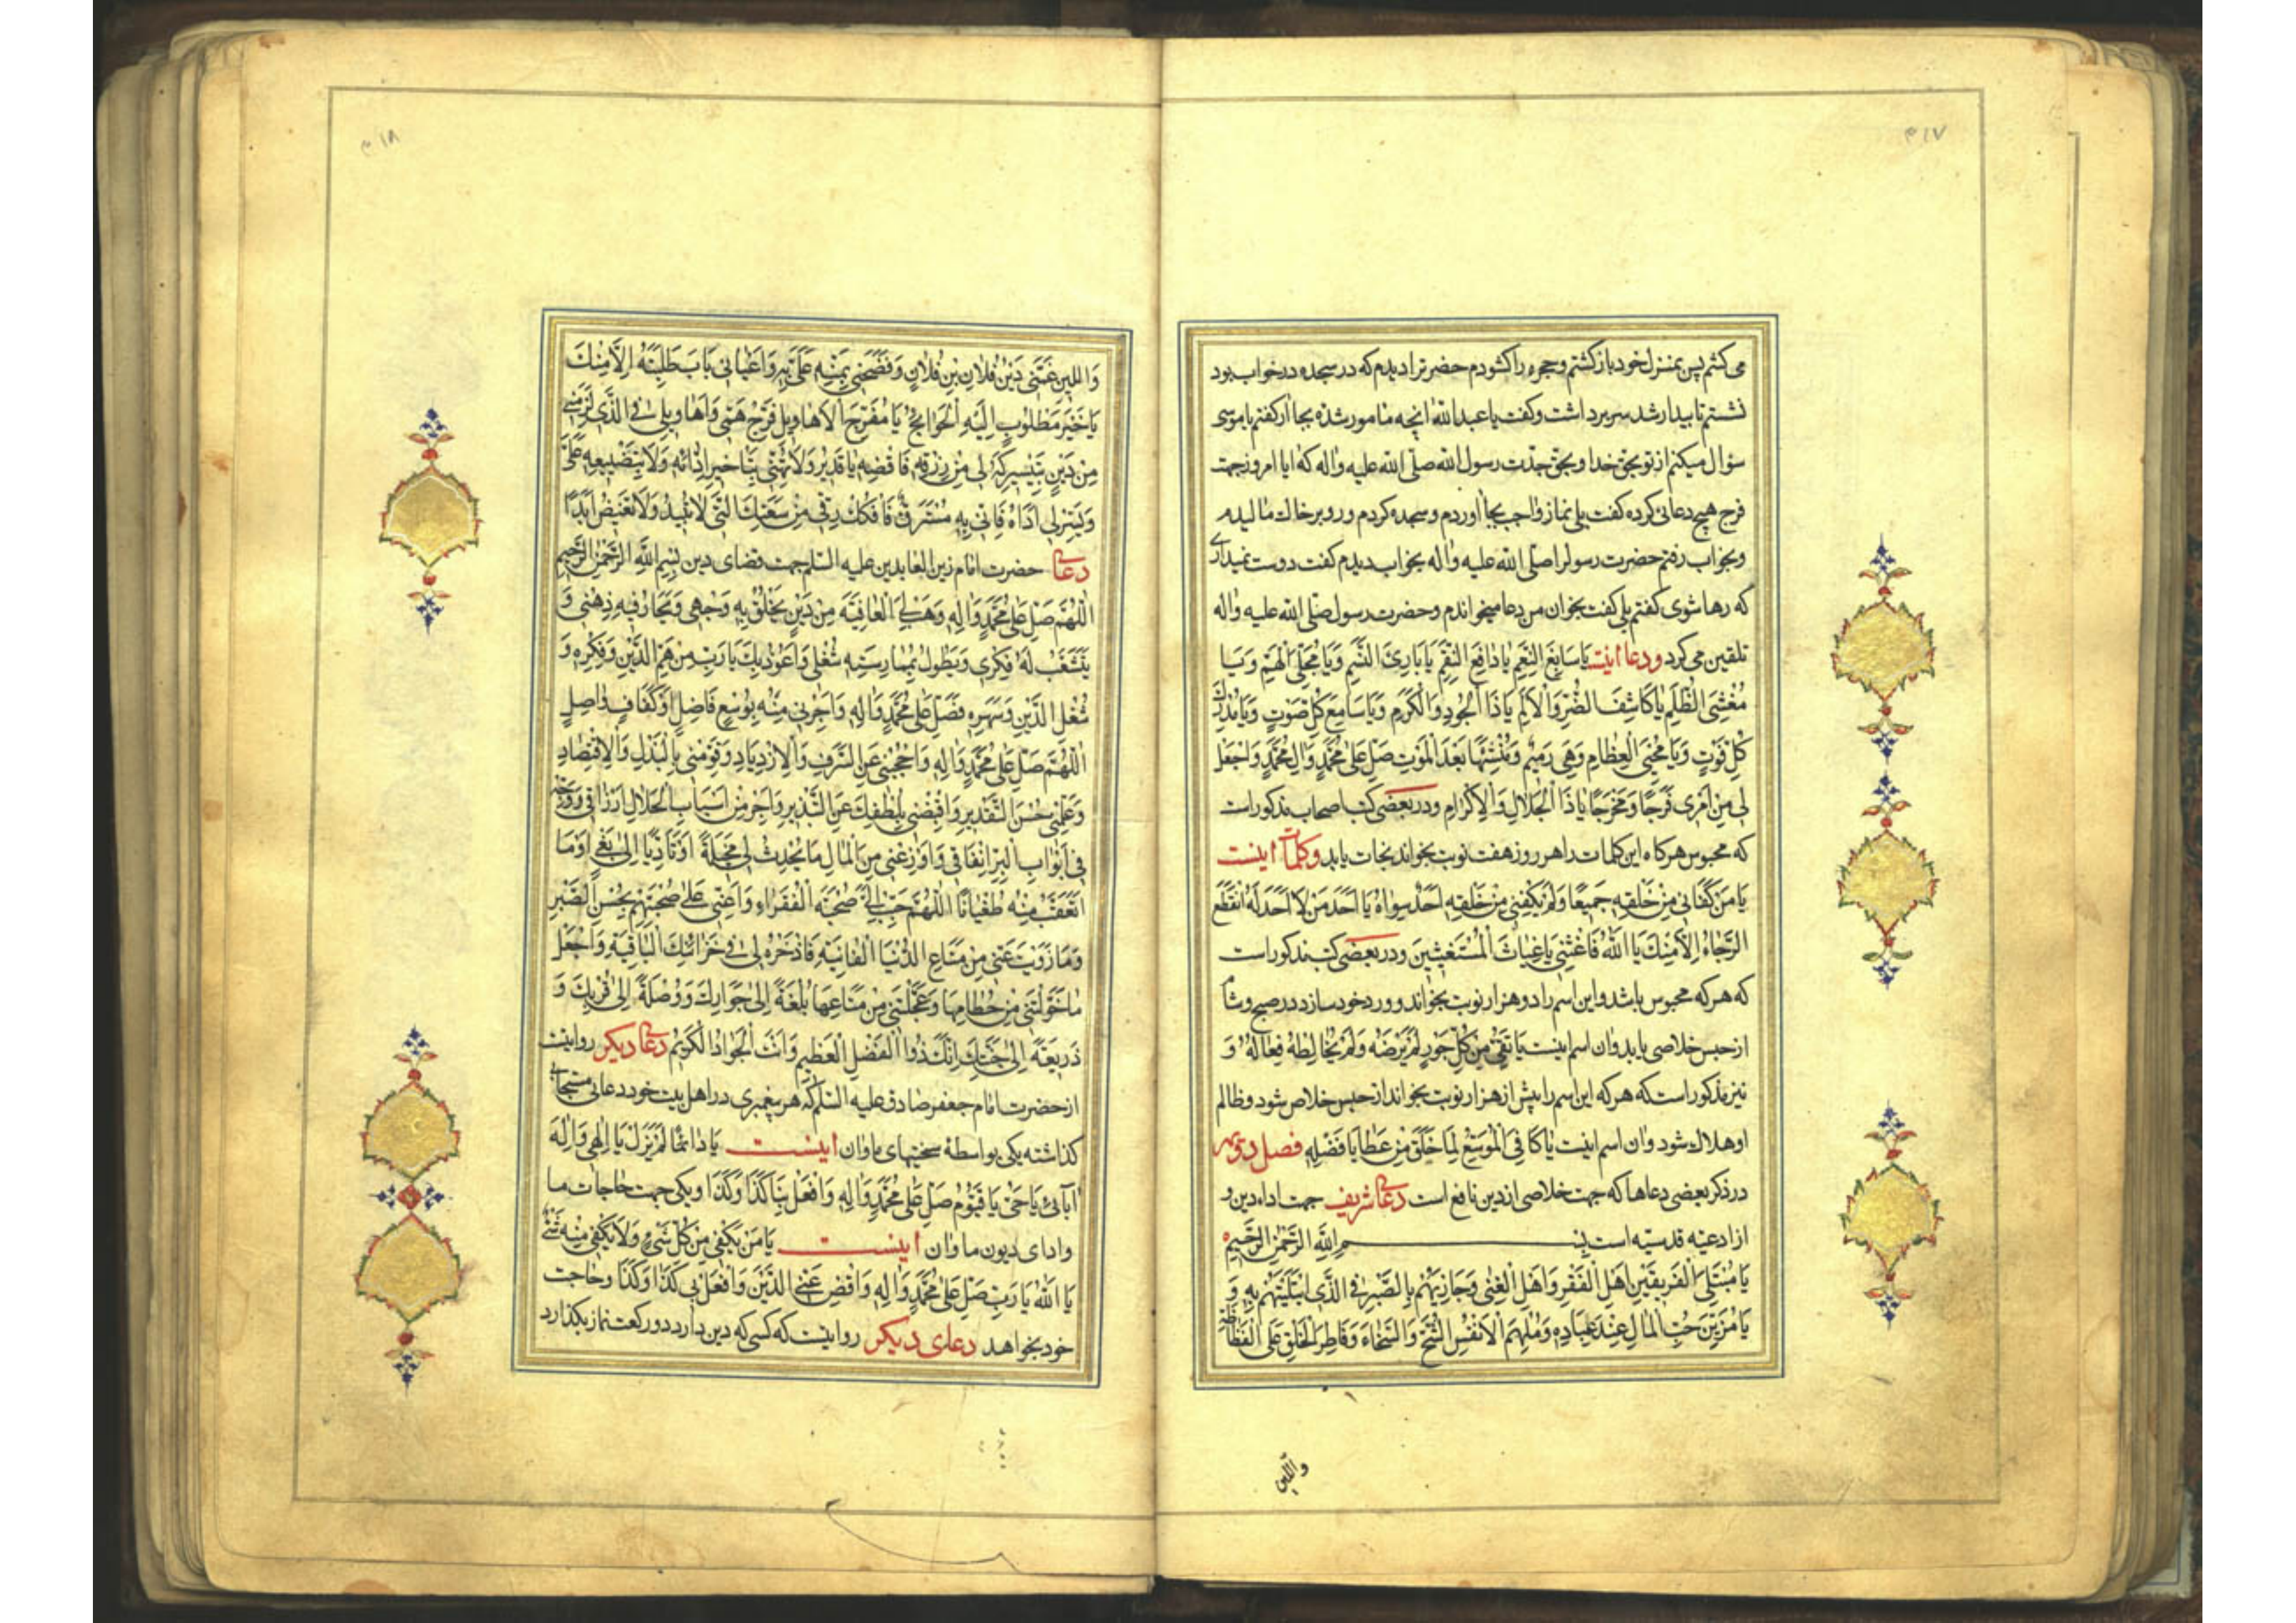 می کشم پس بمنزل خود باز کشتم و حجره را کشودم حضرت را دیدم که در سجده در خواب بود
نشستم تا بیدار شد سر برداشت و کفت یا عبد الله انچه مامور شده بجا ار کفتم یا موسی
سؤال میکنم از تو بحق خدا و بحق جدّت رسول الله صلی الله علیه واله که ایا امروز جهت
فرج هیچ دعائی کرده کفت بلی نماز واجب بجا اوردم و سجده کردم و رو بر خاک مالیدم
و بخواب رفتم حضرت رسول را صلی الله علیه واله بخواب دیدم کفت دوست نمیداری
که رها شوی کفتم بلی کفت بخوان من دعا میخواندم و حضرت رسول صلی الله علیه واله
تلقین می کرد ودعا اینست یَا سَابِغَ النِّعَمِ یَا دَافِعَ النِّقَمِ یَا بَارِئَ النَّسَمِ وَیَا مُجَلِّیَ الْهِمَمِ وَیَا
مُغْشِیَ الظُّلَمِ یَا کَاشِفَ الضُّرِّ وَالْاَلَمِ یَا ذَا الْجُودِ وَالْکَرَمِ وَیَا سَامِعَ کُلِّ صَوْتٍ وَیَا مُدْرِکَ
کُلِّ فَوْتٍ وَیَا مُحْیِیَ الْعِظَامِ وَهِیَ رَمِیمٌ وَمُنْشِئَهَا بَعْدَ الْمَوْتِ صَلِّ عَلٰی مُحَمَّدٍ وَالِ مُحَمَّدٍ وَاجْعَلْ
لِی مِنْ اَمْرِی فَرَجًا وَمَخْرَجًا یَا ذَا الْجَلَالِ وَالْاِکْرَامِ ودر بعضی کتب اصحاب مذکور است
که محبوس هرکاه این کلمات را هر روز هفت نوبت بخواند نجات یابد وکلمات اینست
یَا مَنْ کَفَانِی مِنْ خَلْقِهِ جَمِیعًا وَلَمْ یَکْفِنِی مِنْ خَلْقِهِ اَحَدٌ سِوَاهُ یَا اَحَدَ مَنْ لَا اَحَدَ لَهُ انْقَطَعَ
الرَّجَاءُ اِلَّا مِنْکَ یَا اَللّٰهُ فَاَغِثْنِی یَا غِیَاثَ الْمُسْتَغِیثِینَ ودر بعضی کتب مذکور است
که هرکه محبوس باشد و این اسم را دو هزار نوبت بخواند و ورد خود سازد در صبح و شام
از حبس خلاصی یابد وان اسم اینست یَا نَقِیُّ مِنْ کُلِّ جَوْرٍ لَمْ یَرْضَهُ وَلَمْ یُخَالِطْهُ فِعَالُهُ وَ
نیز مذکور است که هرکه این اسم را بیش از هزار نوبت بخواند از حبس خلاص شود و ظالم
او هلاک شود وان اسم اینست یَا کَافِیَ الْمُوَسِّعُ لِمَا خَلَقَ مِنْ عَطَایَا فَضْلِهِ فصل دویم
در ذکر بعضی دعاها که جهت خلاصی از دین نافع است دعای شریف جهت اداء دین و
از ادعیه قدسیّه است بِسْمِ اللّٰهِ الرَّحْمٰنِ الرَّحِیمِ
یَا مُبْتَلِیَ الْفَرِیقَیْنِ اَهْلَ الْفَقْرِ وَاَهْلَ الْغِنٰی وَجَازِیَهُمْ بِالصَّبْرِ فِی الَّذِی ابْتَلَیْتَهُمْ بِهِ وَ
یَا مُزَیِّنَ حُبِّ الْمَالِ عِنْدَ عِبَادِهِ وَمُلْهِمَ الْاَنْفُسِ الشُّحَّ وَالسَّخَاءَ وَفَاطِرَ الْخَلْقِ عَلَی الْفَظَاظَةِ
واللین
وَاللِّینِ غَمَّنِی دَیْنُ فُلَانِ بْنِ فُلَانٍ وَفَضَحَنِی بِمَنِّهِ عَلَیَّ بِهِ وَاَعْیَانِی بَابَ طَلِبَتِهِ اِلَّا مِنْکَ
یَا خَیْرَ مَطْلُوبٍ اِلَیْهِ الْحَوَائِجُ یَا مُفَرِّجَ الْاَهَاوِیلِ فَرِّجْ هَمِّی وَاَهَاوِیلِی فِی الَّذِی لَزِمَنِی
مِنْ دَیْنٍ بِتَیْسِیرِکَهُ لِی مِنْ رِزْقِهِ فَاقْضِهِ یَا قَدِیرُ وَلَا تُهِنِّی بِتَاْخِیرِ اِدَائِهِ وَلَا بِتَضْیِیعِهِ عَلَیَّ
وَیَسِّرْ لِی اَدَاهُ فَاِنِّی بِهِ مُسْتَرَقٌّ فَافْکُکْ رِقِّی مِنْ سَعَتِکَ الَّتِی لَا تَبِیدُ وَلَا تَغِیضُ اَبَدًا
دعای حضرت امام زین العابدین علیه السّلم جهت قضای دین بِسْمِ اللّٰهِ الرَّحْمٰنِ الرَّحِیمِ
اَللّٰهُمَّ صَلِّ عَلٰی مُحَمَّدٍ وَالِهِ وَهَبْ لِیَ الْعَافِیَةَ مِنْ دَیْنٍ یَخْلُقُ بِهِ وَجْهِی وَیَحَارُ فِیهِ ذِهْنِی وَ
یَتَشَعَّبُ لَهُ فِکْرِی وَیَطُولُ بِمُمَارَسَتِهِ شُغْلِی وَاَعُوذُ بِکَ یَا رَبِّ مِنْ هَمِّ الدَّیْنِ وَفِکْرِهِ وَ
شُغْلِ الدَّیْنِ وَسَهَرِهِ فَصَلِّ عَلٰی مُحَمَّدٍ وَالِهِ وَاَجِرْنِی مِنْهُ بِوُسْعٍ فَاضِلٍ اَوْ کَفَافٍ وَاصِلٍ
اَللّٰهُمَّ صَلِّ عَلٰی مُحَمَّدٍ وَالِهِ وَاحْجُبْنِی عَنِ السَّرَفِ وَالْاِزْدِیَادِ وَقَوِّمْنِی بِالْبَذْلِ وَالْاِقْتِصَادِ
وَعَلِّمْنِی حُسْنَ التَّقْدِیرِ وَاقْبِضْنِی بِلُطْفِکَ عَنِ التَّبْذِیرِ وَاَجْرِ مِنْ اَسْبَابِ الْحَلَالِ اَرْزَاقِی وَوَجِّهْ
فِی اَبْوَابِ الْبِرِّ اِنْفَاقِی وَازْوِ عَنِّی مِنَ الْمَالِ مَا یُحْدِثُ لِی مَخِیلَةً اَوْ تَاَدِّیًا اِلٰی بَغْیٍ اَوْ مَا
اَتَعَقَّبُ مِنْهُ طُغْیَانًا اَللّٰهُمَّ حَبِّبْ اِلَیَّ صُحْبَةَ الْفُقَرَاءِ وَاَعِنِّی عَلٰی صُحْبَتِهِمْ بِحُسْنِ الصَّبْرِ
وَمَا زَوَیْتَ عَنِّی مِنْ مَتَاعِ الدُّنْیَا الْفَانِیَةِ فَاذْخَرْهُ لِی فِی خَزَائِنِکَ الْبَاقِیَةِ وَاجْعَلْ
مَا خَوَّلْتَنِی مِنْ حُطَامِهَا وَعَجَّلْتَ لِی مِنْ مَتَاعِهَا بُلْغَةً اِلٰی جِوَارِکَ وَوُصْلَةً اِلٰی قُرْبِکَ وَ
ذَرِیعَةً اِلٰی جَنَّتِکَ اِنَّکَ ذُوا الْفَضْلِ الْعَظِیمِ وَاَنْتَ الْجَوَادُ الْکَرِیمُ دعای دیکر روایتست
از حضرت امام جعفر صادق علیه السّلم که هر پیغمبری در اهل بیت خود دعائی مستجاب
کذاشته یکی بواسطهٔ سختیهای ما وان اینست یَا دَائِمًا لَمْ یَزَلْ یَا اِلٰهِی وَاِلٰهَ
اٰبَائِی یَا حَیُّ یَا قَیُّومُ صَلِّ عَلٰی مُحَمَّدٍ وَالِهِ وَافْعَلْ بِنَا کَذَا وَکَذَا ویکی جهت حاجات ما
وادای دیون ما وان اینست یَا مَنْ یَکْفِی مِنْ کُلِّ شَیْءٍ وَلَا یَکْفِی مِنْهُ شَیْءٌ
یَا اَللّٰهُ یَا رَبِّ صَلِّ عَلٰی مُحَمَّدٍ وَالِهِ وَاقْضِ عَنِّی الدَّیْنَ وَافْعَلْ بِی کَذَا وَکَذَا وحاجت
خود بخواهد دعای دیکر روایتست که کسی که دین دارد دو رکعت نماز بکذارد